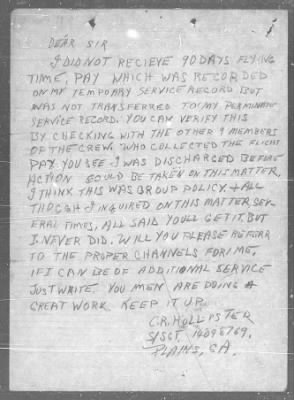 DEAR SIR
I DID NOT RECIEVE 90 DAYS FLYING
TIME, PAY WHICH WAS RECORDED
ON MY TEMPORARY SERVICE RECORD BUT
WAS NOT TRANSFERRED TO MY PERMINATE
SERVICE RECORD. YOU CAN VERIFY THIS
BY CHECKING WITH THE OTHER 9 MEMBERS
OF THE CREW, WHO COLLECTED THE FLIGHT
PAY. YOU SEE I WAS DISCHARGED BEFORE
ACTION COULD BE TAKEN ON THIS MATTER,
I THINK THIS WAS GROUP POLICY. & ALL
THOUGH I INQUIRED ON THIS MATTER SEV-
ERAL TIMES, ALL SAID YOULL GET IT, BUT
I NEVER DID. WILL YOU PLEASE REFERR
TO THE PROPER CHANNELS FOR ME.
IF I CAN BE OF ADDITIONAL SERVICE
JUST WRITE. YOU MEN ARE DOING A
GREAT WORK KEEP IT UP.
C.R. HOLLISTER
S/SGT. 14098769.
PLAINS, GA.